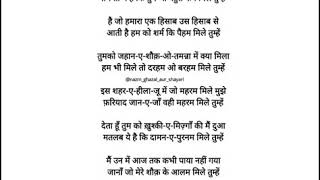 है जो हमारा एक हिसाब उस हिसाब से
आती है हम को शर्म कि पैहम मिले तुम्हें
तुमको जहान-ए-शौक़-ओ-तमन्ना में क्या मिला
हम भी मिले तो दरहम ओ बरहम मिले तुम्हें
@nazm_ghazal_aur_shayari
इस शहर-ए-हीला-जू में जो महरम मिले मुझे
फ़रियाद जान-ए-जाँ वही महरम मिले तुम्हें
देता हूँ तुम को ख़ुश्की-ए-मिज़्गाँ की मैं दुआ
मतलब ये है कि दामन-ए-पुरनम मिले तुम्हें
मैं उन में आज तक कभी पाया नहीं गया
जानाँ जो मेरे शौक़ के आलम मिले तुम्हें